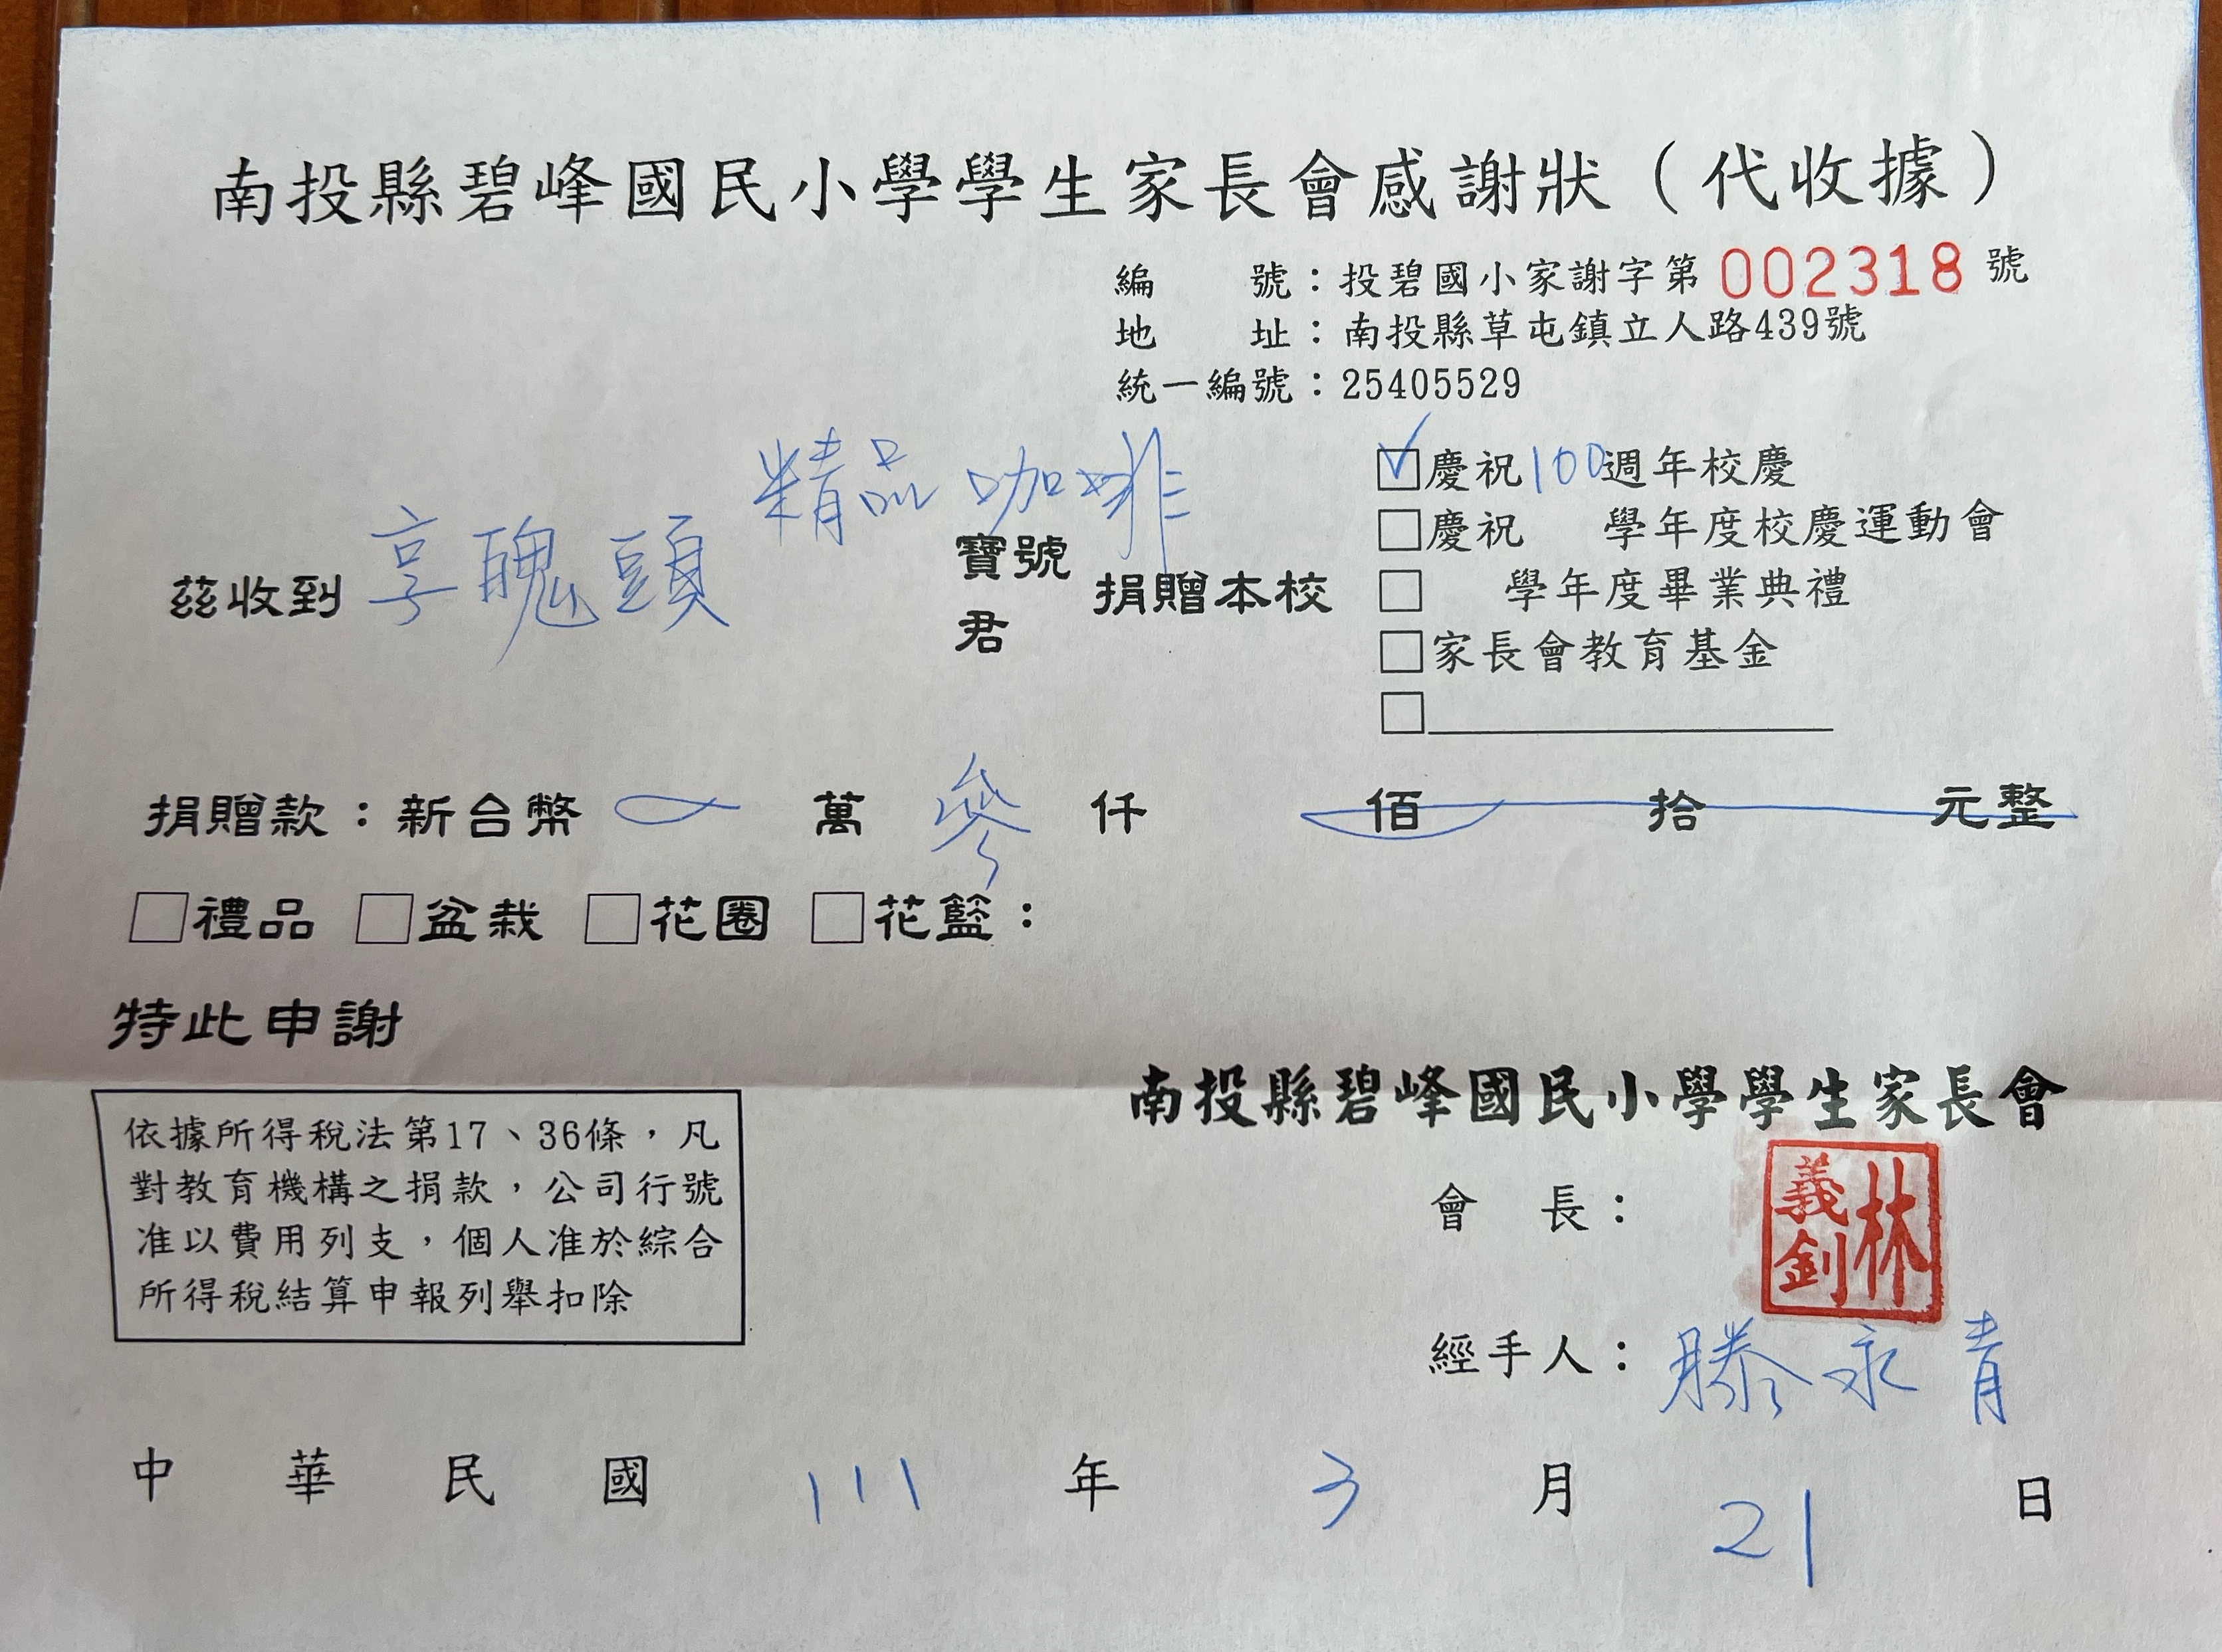 南投縣碧峰國民小學學生家長會感謝狀（代收據）
編　　號：投碧國小家謝字第 002318 號
地　　址：南投縣草屯鎮立人路439號
統一編號：25405529
茲收到 享醜頭 精品咖啡 寶號 君 捐贈本校
慶祝100週年校慶
慶祝　學年度校慶運動會
學年度畢業典禮
家長會教育基金
捐贈款：新台幣　萬 參 仟　佰　拾　元整
□禮品 □盆栽 □花圈 □花籃：
特此申謝
南投縣碧峰國民小學學生家長會
依據所得稅法第17、36條，凡
對教育機構之捐款，公司行號
准以費用列支，個人准於綜合
所得稅結算申報列舉扣除
會　長：林義釗
經手人：滕永青
中華民國 111 年 3 月 21 日